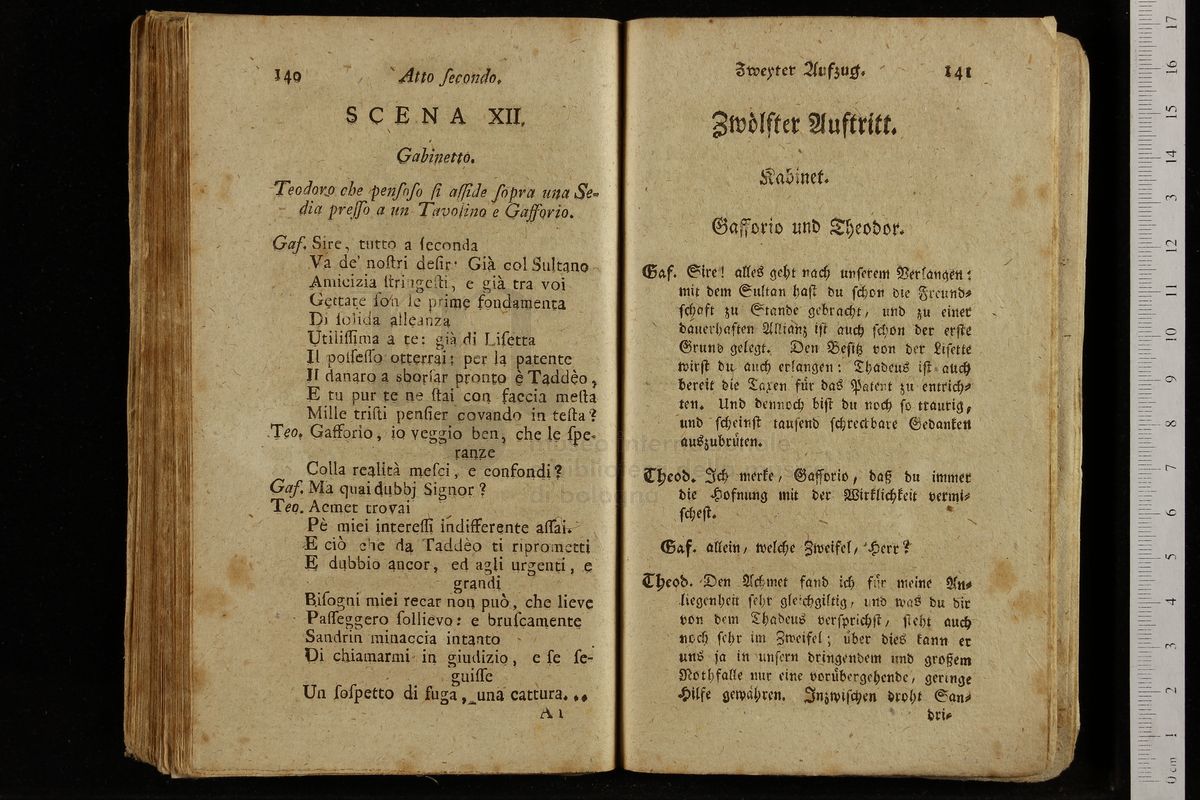 140 Atto ſecondo.
SCENA XII.
Gabinetto.
Teodoro che penſoſo ſi aſſide ſopra una Se-
dia preſſo a un Tavolino e Gafforio.
Gaf. Sire, tutto a ſeconda
Va de' noſtri deſir. Già col Sultano
Amicizia ſtringeſti, e già tra voi
Gettate ſon le prime fondamenta
Di ſolida alleanza
Utiliſſima a te: già di Liſetta
Il poſſeſſo otterrai: per la patente
Il danaro a sborſar pronto è Taddèo,
E tu pur te ne ſtai con faccia meſta
Mille triſti penſier covando in teſta?
Teo. Gafforio, io veggio ben, che le ſpe-
ranze
Colla realità meſci, e confondi?
Gaf. Ma quai dubbj Signor?
Teo. Acmet trovai
Pè miei intereſſi indifferente aſſai.
E ciò che da Taddèo ti riprometti
E dubbio ancor, ed agli urgenti, e
grandi
Biſogni miei recar non può, che lieve
Paſſeggero ſollievo: e bruſcamente
Sandrin minaccia intanto
Di chiamarmi in giudizio, e ſe ſe-
guiſſe
Un ſoſpetto di fuga, una cattura...
A i
Zweyter Aufzug. 141
Zwölfter Auftritt.
Kabinet.
Gafforio und Theodor.
Gaf. Sire! alles geht nach unſerem Verlangen:
mit dem Sultan haſt du ſchon die Freund-
ſchaft zu Stande gebracht, und zu einer
dauerhaften Allianz iſt auch ſchon der erſte
Grund gelegt. Den Beſitz von der Liſette
wirſt du auch erlangen: Thadeus iſt auch
bereit die Taxen für das Patent zu entrich-
ten. Und dennoch biſt du noch ſo traurig,
und ſcheinſt tauſend ſchreckbare Gedanken
auszubrüten.
Theod. Ich merke, Gafforio, daß du immer
die Hofnung mit der Wirklichkeit vermi-
ſcheſt.
Gaf. allein, welche Zweifel, Herr?
Theod. Den Achmet fand ich für meine An-
liegenheit ſehr gleichgiltig, und was du dir
von dem Thadeus verſprichſt, ſteht auch
noch ſehr im Zweifel; über dies kann er
uns ja in unſern dringendem und großem
Nothfalle nur eine vorübergehende, geringe
Hilfe gewähren. Inzwiſchen droht San-
dri-
museo internazionale
e biblioteca della musica
di bologna
0 cm 1 2 3 4 5 6 7 8 9 10 11 12 13 14 15 16 17